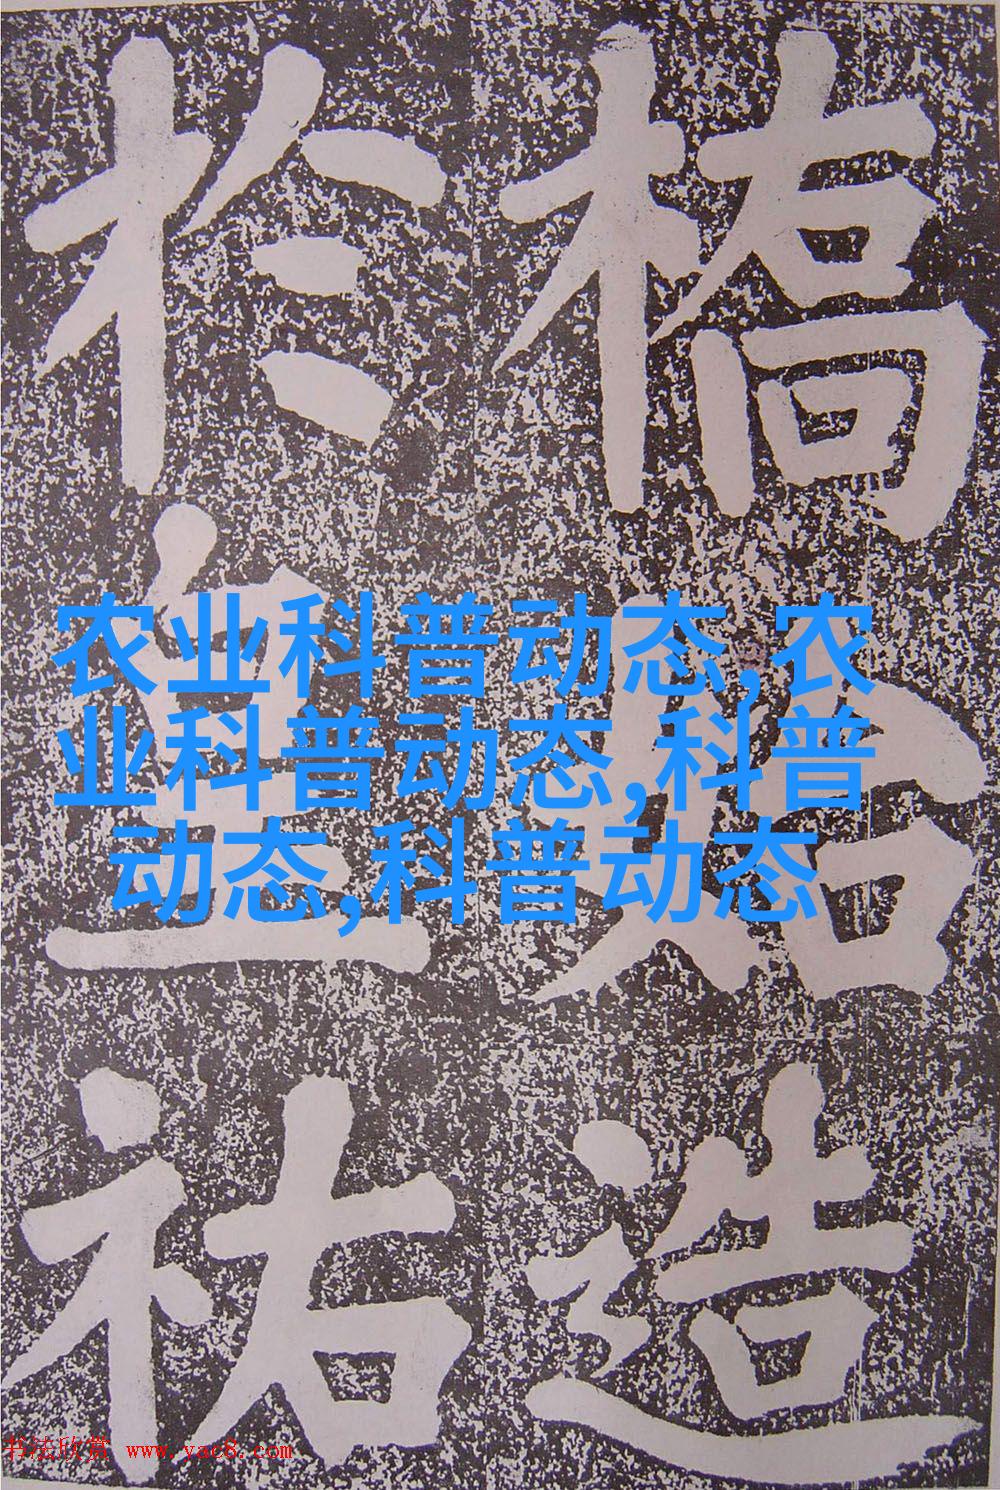 橋始造
於皇祐
农业科普动态,农
业科普动态,科普
动态,科普动态
书法欣赏 www.yac8.com